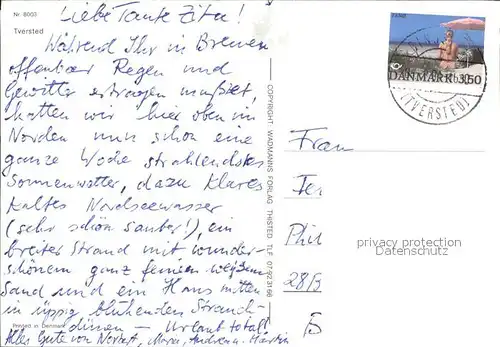 Nr 8003
Tversted
Liebe Tante Zita!
Während Ihr in Bremen
offenbar Regen und
Gewitter ertragen mußtet,
hatten wir hier oben im
Norden nun schon eine
ganze Woche strahlendstes
Sonnenwetter, dazu klares
kaltes Nordseewasser
(sehr schön sauber!), ein
breiter Strand mit wunder-
schönem ganz feinem weißem
Sand und ein Haus mitten
in üppig blühenden Strand-
dünen – Urlaub total!
Alles Gute von Norbert, Andrea u. Martin
Printed in Denmark
COPYRIGHT WADMANNS FORLAG THISTED TLF. 07-92 31 68
FANØ
DANMARK 3.50
(TVERSTED)
Frau
Phil
28
privacy protection
Datenschutz